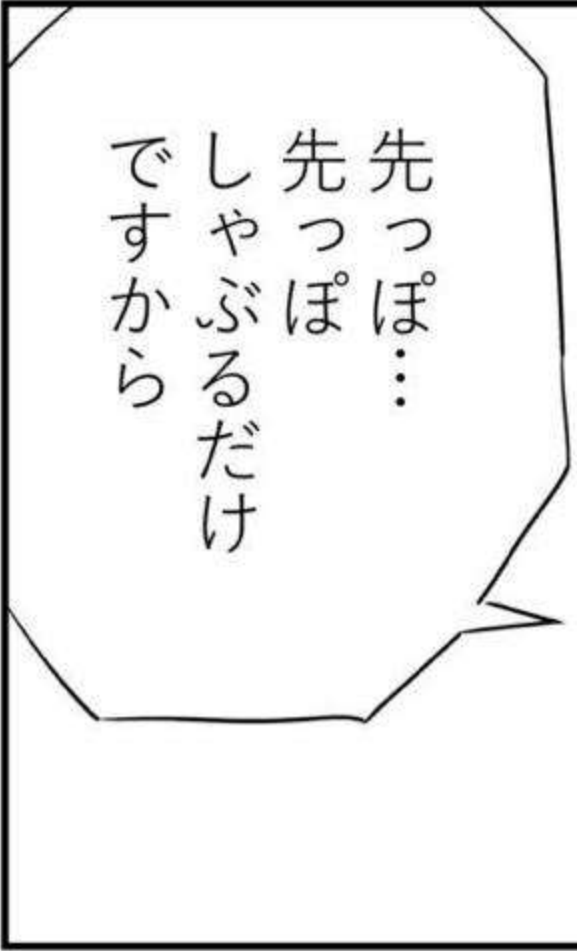 先っぽ…
先っぽ
しゃぶるだけ
ですから